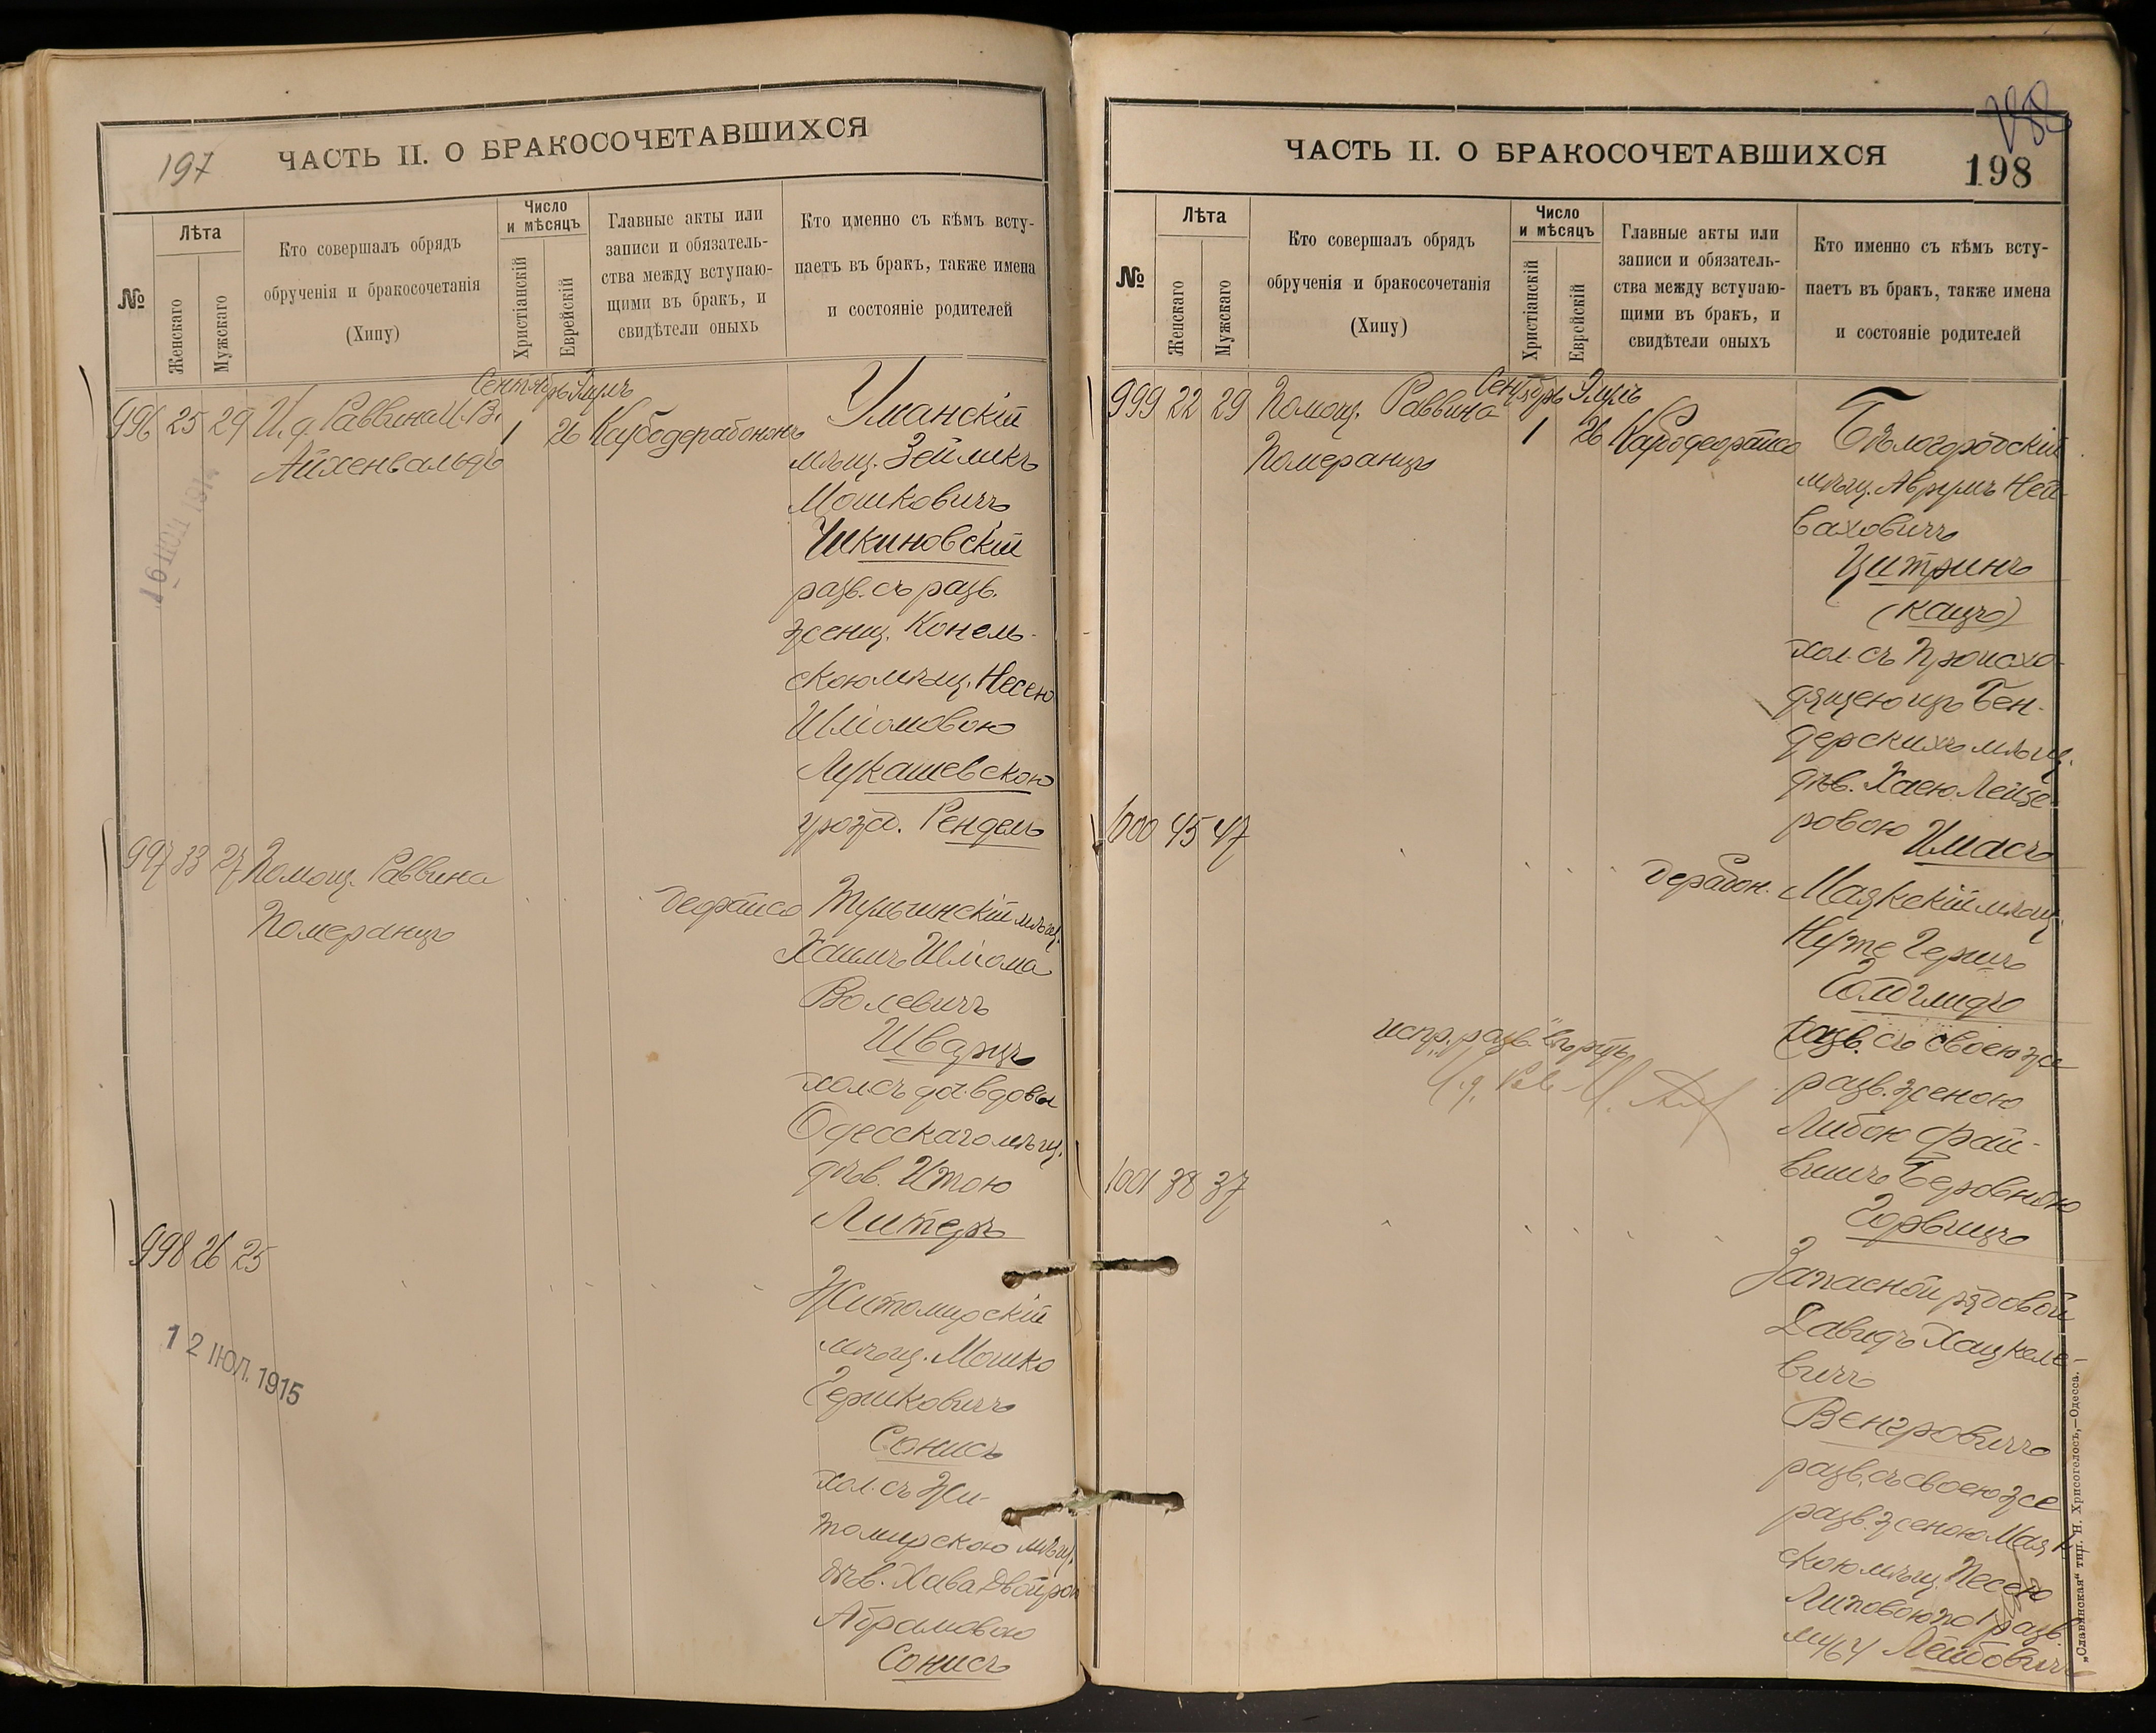 197
ЧАСТЬ II. О БРАКОСОЧЕТАВШИХСЯ
№
Лѣта
Женскаго
Мужскаго
Кто совершалъ обрядъ
обрученія и бракосочетанія
(Хипу)
Число
и мѣсяцъ
Христіанскій
Еврейскій
Главные акты или
записи и обязатель-
ства между вступаю-
щими въ бракъ, и
свидѣтели оныхъ
Кто именно съ кѣмъ всту-
паетъ въ бракъ, также имена
и состояніе родителей
996 25 29 И.д. Раввина И. В.
Айхенвальдъ
Сентябрь Элулъ
1 26
Умανскій
мѣщ. Зейликъ
Мошковичъ
Чикиновскій
разв. съ разв.
женщ. Конель-
скою мѣщ. Несею
Шліомовою
Лукашевскою
урожд. Рендель
997 33 27 Помощ. Раввина
Померанцъ
Тульчинскій мѣщ.
Хаимъ Шліома
Волевичъ
Шварцъ
хол. съ доч. вдовы
Одесскаго мѣщ.
дѣв. Итою
Литеръ
998 26 25
Житомирскій
мѣщ. Мошко
Гершковичъ
Сонисъ
хол. съ Жи-
томирскою мѣщ.
дѣв. Хава Двойрою
Абрамовою
Сонисъ
12 ІЮЛ. 1915
ЧАСТЬ II. О БРАКОСОЧЕТАВШИХСЯ
198
№
Лѣта
Женскаго
Мужскаго
Кто совершалъ обрядъ
обрученія и бракосочетанія
(Хипу)
Число
и мѣсяцъ
Христіанскій
Еврейскій
Главные акты или
записи и обязатель-
ства между вступаю-
щими въ бракъ, и
свидѣтели оныхъ
Кто именно съ кѣмъ всту-
паетъ въ бракъ, также имена
и состояніе родителей
999 22 29 Помощ. Раввина
Померанцъ
Сентябрь Элулъ
1 26
Бѣлогородскій
мѣщ. Аврумъ Ней-
ваховичъ
Цитринъ
(Кацъ)
хол. съ происхо-
дящею изъ Бен-
дерскихъ мѣщ.
дѣв. Хаею Лейзе-
ровою Имасъ
1000 45 47
Маякскій мѣщ.
Нуте Гершъ
разв. съ своею же
разв. женою
Либою Фай-
Беровною
Горвицъ
испр. "разв."
1001 38 37
Запасной рядовой
Давидъ Хацкеле-
вичъ
Венгровичъ
разв. съ своею же
разв. женою Маяк-
скою мѣщ. Песею
Липовою по разв.
мужу Лейбовичъ
„Славянская“ тип. Н. Хрисогелосъ,—Одесса.